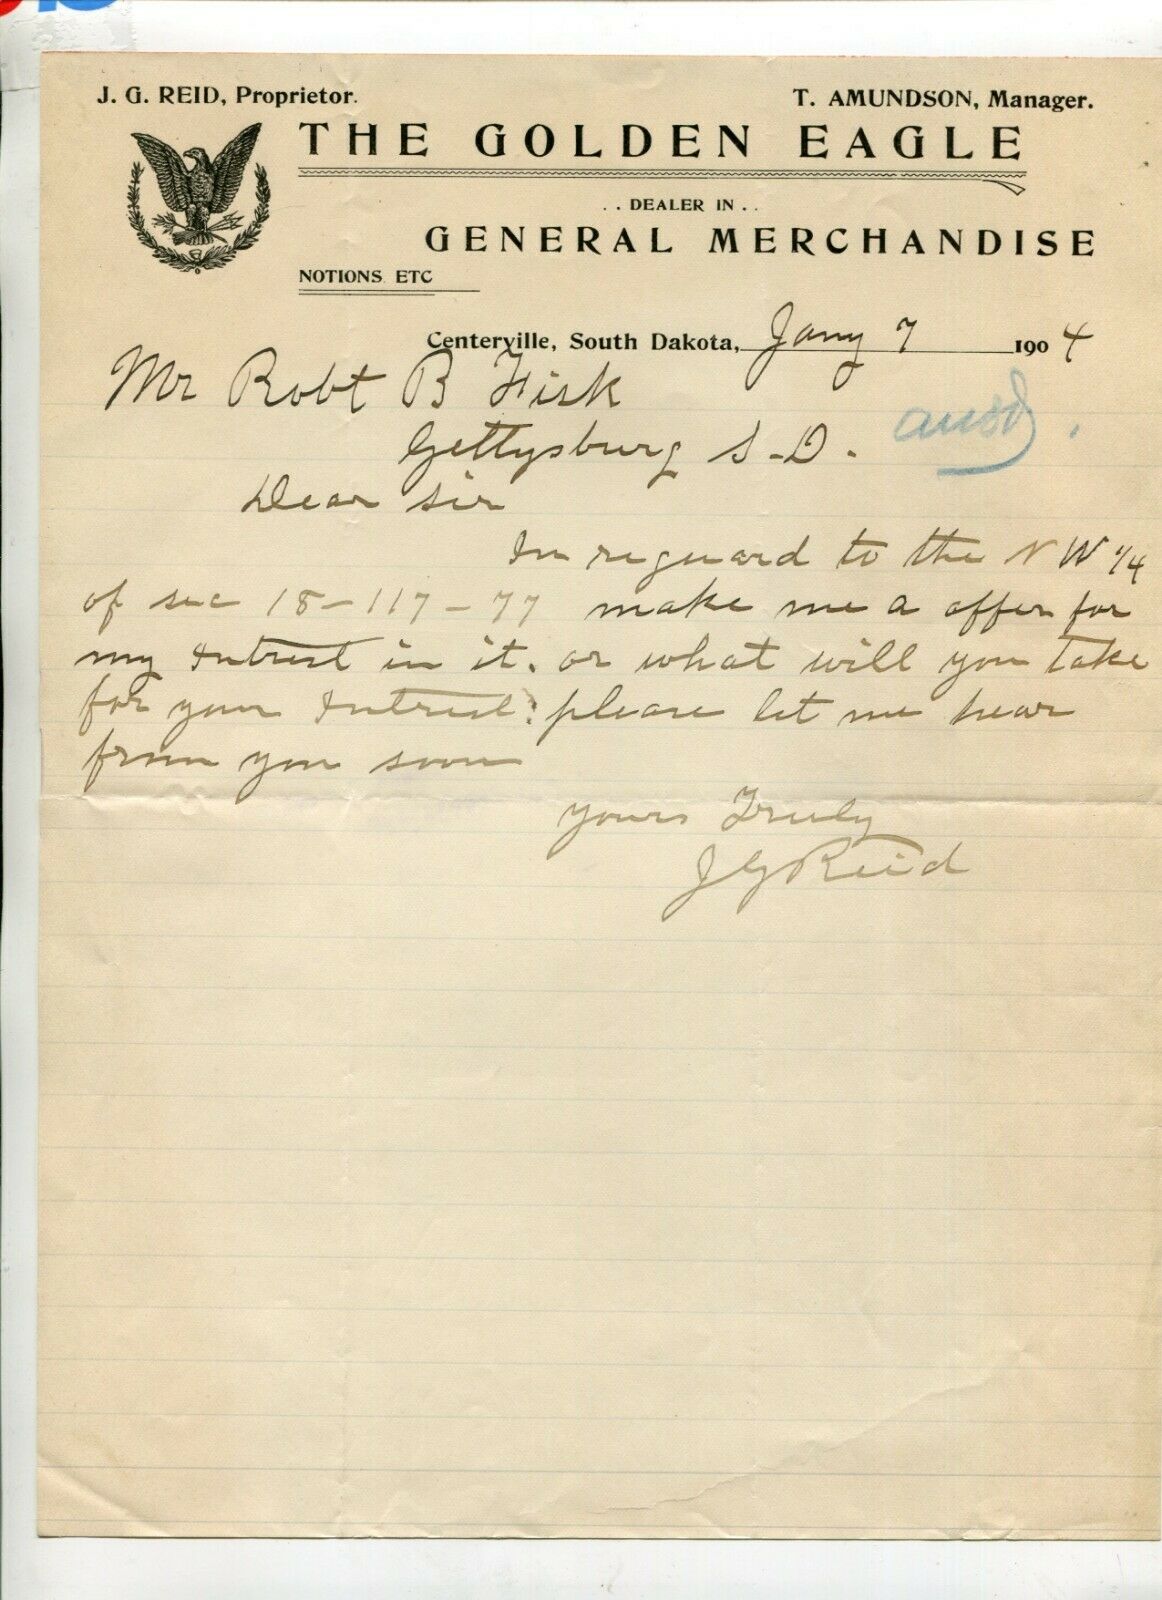 J. G. REID, Proprietor.
T. AMUNDSON, Manager.
THE GOLDEN EAGLE
. . DEALER IN . .
GENERAL MERCHANDISE
NOTIONS. ETC
Centerville, South Dakota, Jany 7 1904
Mr Robt B Fisk
Gettysburg S-D.
ansd.
Dear Sir
In reguard to the N W 1/4
of sec 18-117-77 make me a offer for
my Intrest in it. or what will you take
for your Intrest: please let me hear
from you soon
yours Truly
J G Reid